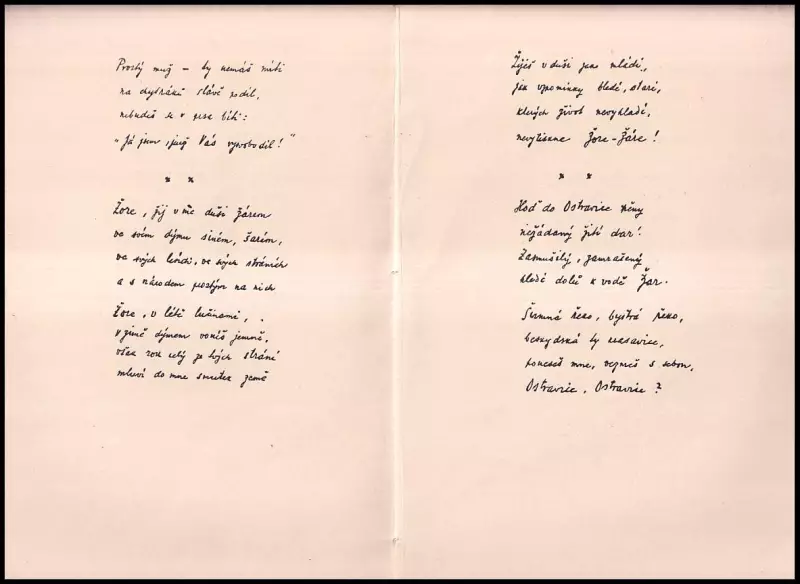 Prostý muž – ty nemáš míti
na chytráků slávě podíl,
nebudeš se v prse bíti:
"Já jsem, jenž Vás vysvobodil!"
* *
Žore, žij v mé duši žárem
ve svém dýmu siném, šarém,
ve svých lesích, ve svých stráních
a s národem prostým na nich
Žore, v létě lučinami,
v zimě dýmem voníš jemně,
však rok celý ze tvých strání
mluví do mne smutek země
Žiješ v duši jako mládí,
jak vzpomínky bledé, staré,
kterých život nevyhladí,
nevytiskne Žore-Žáre!
* *
Hoď do Ostravice pěny
nežádaný žití dar!
Zasmušilý, zamračený
hledě dolů k vodě Žar.
Šumná řeko, bystrá řeko,
beskydská ty krasavice,
poneseš mne, vezmeš s sebou,
Ostravice, Ostravice?